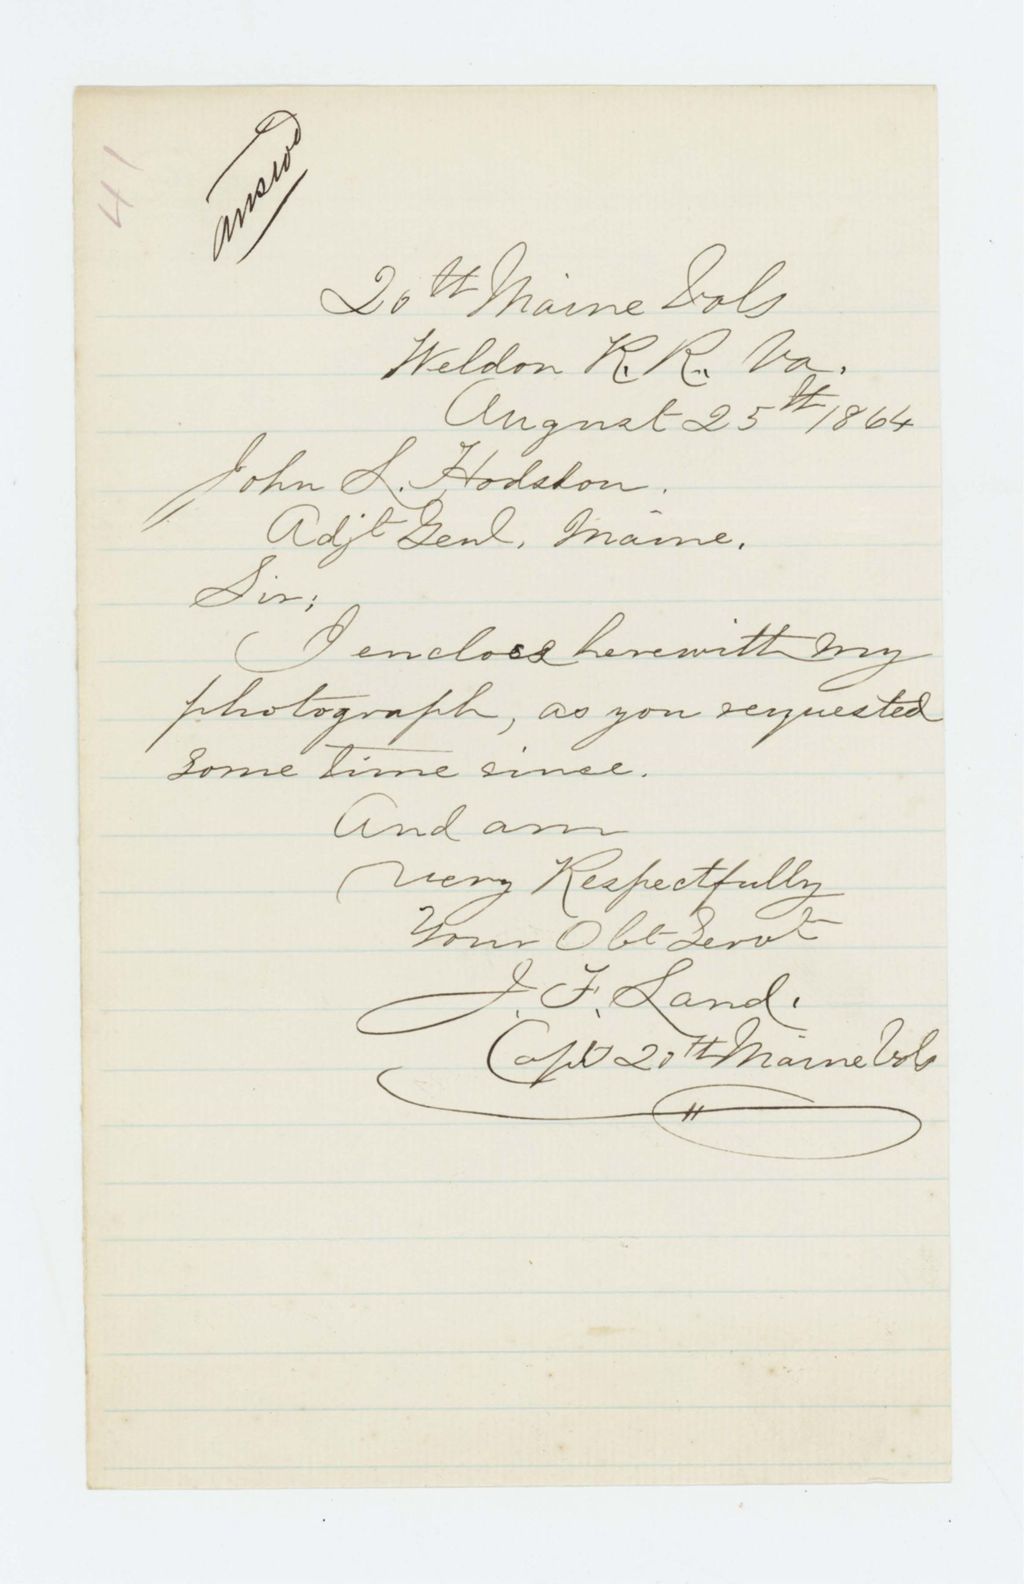 41
answd
20th Maine Vols
Weldon R. R. Va.
August 25th 1864
John L. Hodsdon.
Adjt Genl. Maine.
Sir;
I enclose herewith my
photograph, as you requested
some time since.
And am
very Respectfully
Your Obt Servt
J. F. Land.
Capt 20th Maine Vols